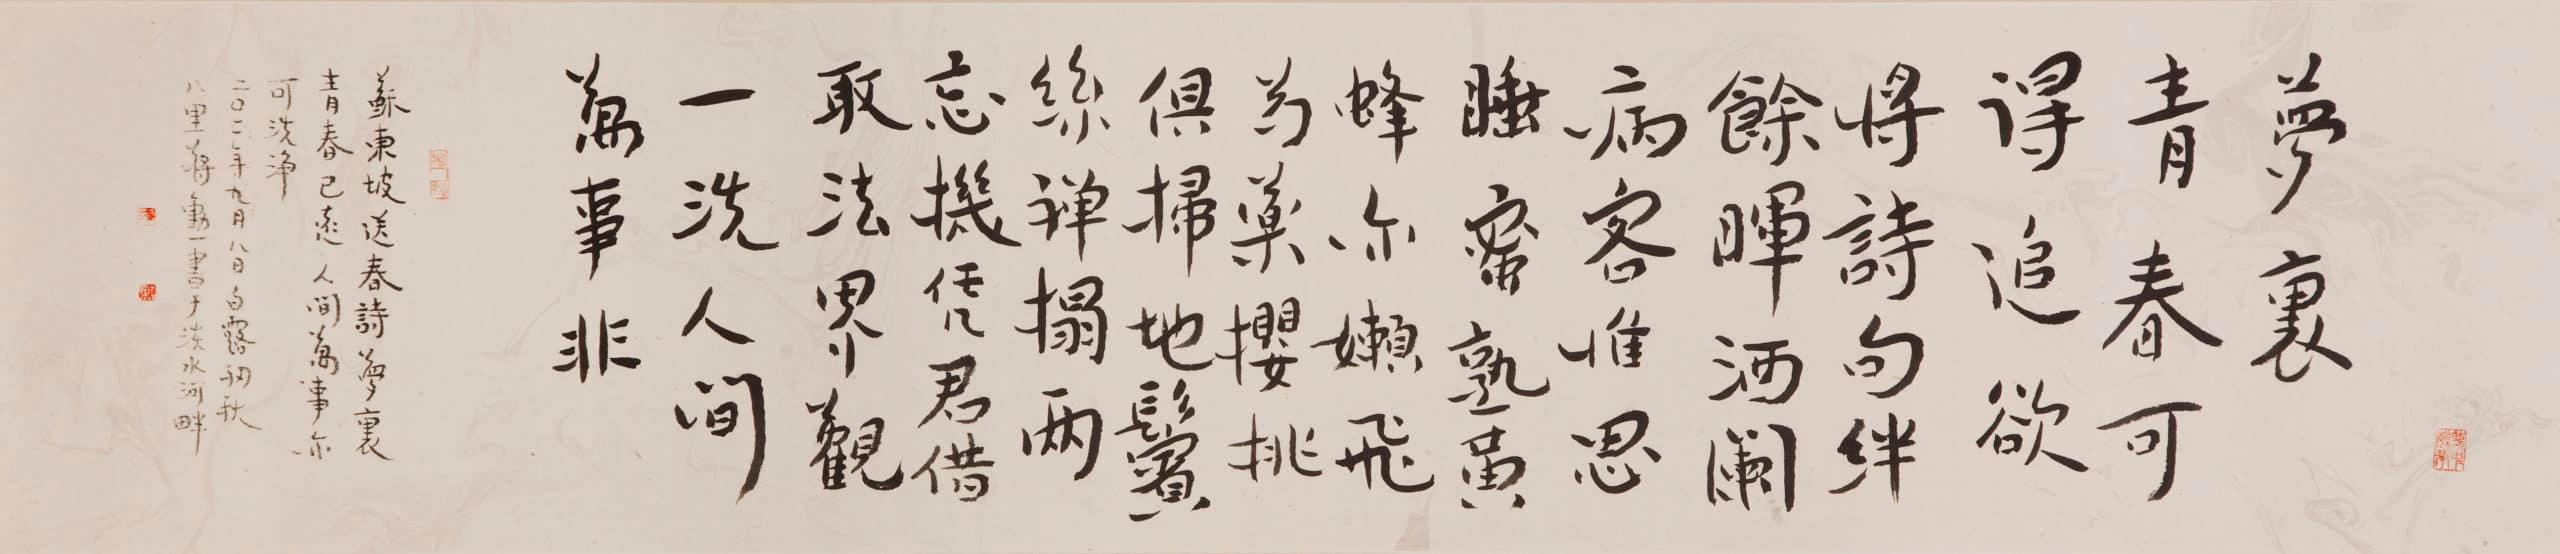 夢裏
青春可
得追欲
將詩句絆
餘暉酒闌
病客惟思
睡蜜熟黃
蜂亦嬾飛
芍藥櫻桃
俱掃地鬢
絲禅榻两
忘機凭君借
取法界觀
一洗人間
萬事非
蘇東坡送春詩夢裏
青春已遠人間萬事亦
可洗淨
二〇二一年九月八日白露初秋
八里蔣勳書于淡水河畔